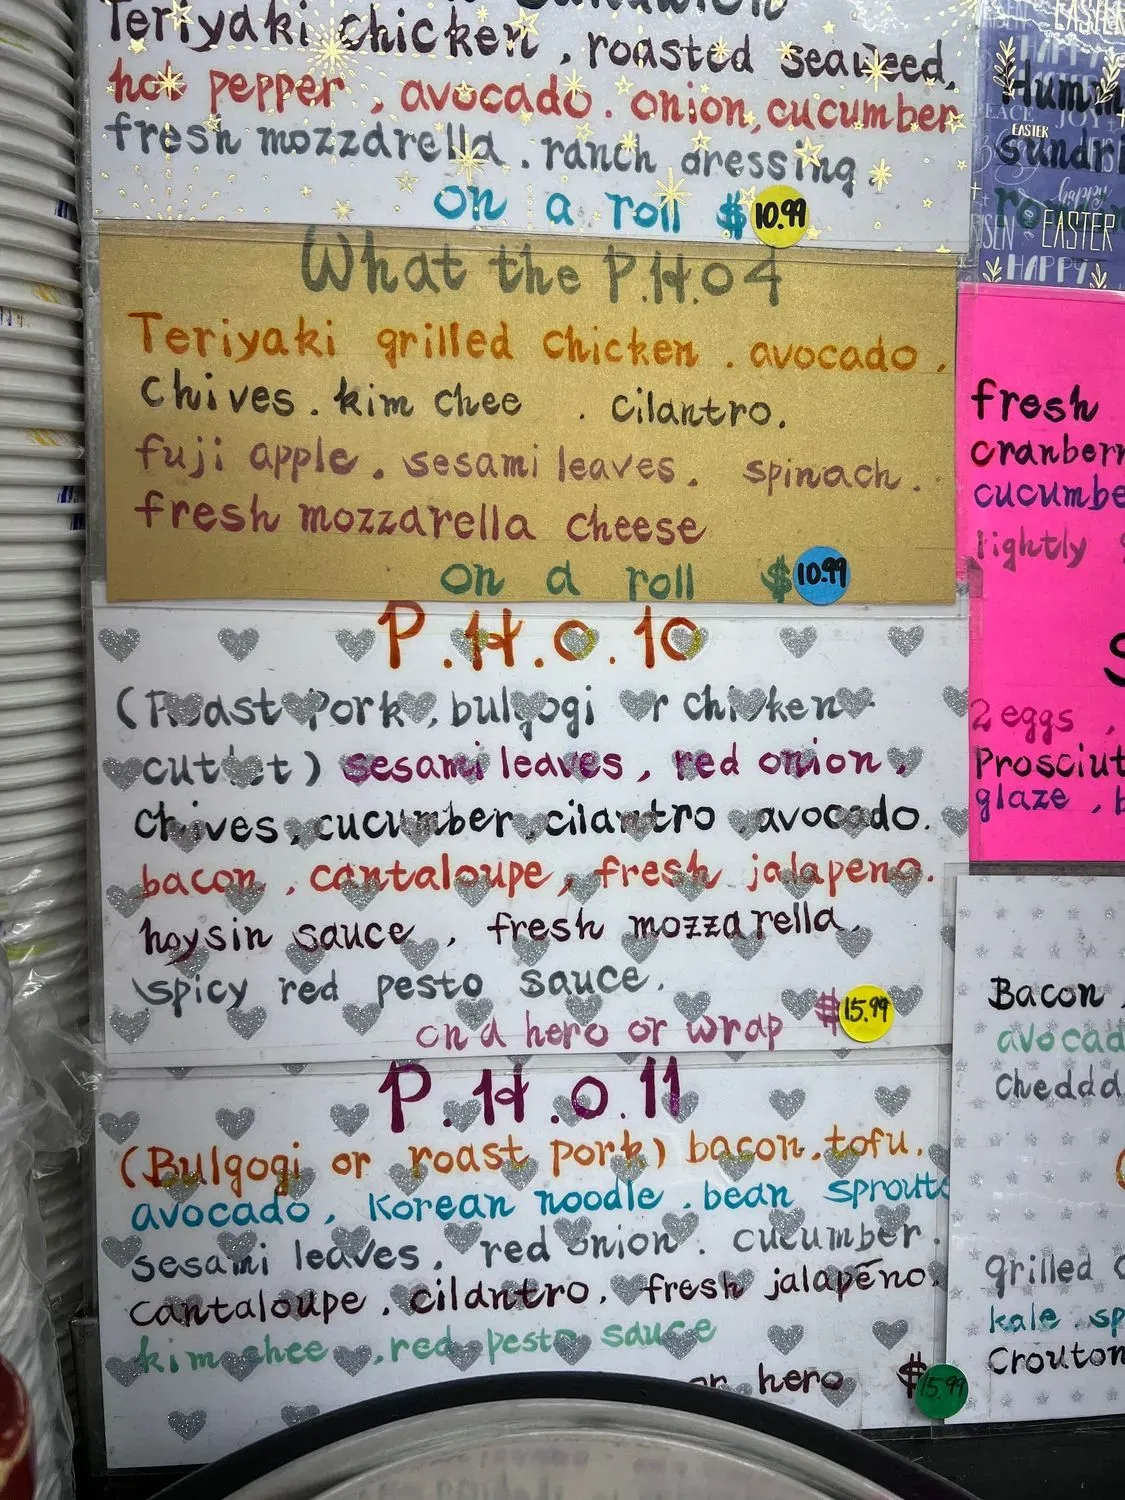 Sandwich
Teriyaki chicken, roasted seaweed,
hot pepper, avocado. onion, cucumber
fresh mozzarella. ranch dressing
on a roll $10.99
What the P.H.O 4
Teriyaki grilled chicken. avocado.
Chives. kim chee . cilantro.
fuji apple. sesami leaves. spinach.
fresh mozzarella cheese
on a roll $10.99
P.H.O.10
(Roast Pork, bulgogi or chicken
cutlet) sesami leaves, red onion,
chives, cucumber, cilantro, avocado.
bacon, cantaloupe, fresh jalapeno.
hoysin sauce, fresh mozzarella,
spicy red pesto sauce.
on a hero or wrap $15.99
P.H.O.11
(Bulgogi or roast pork) bacon, tofu.
avocado, Korean noodle, bean sprouts
sesami leaves, red onion. cucumber.
cantaloupe, cilantro, fresh jalapeño.
kim chee, red pesto sauce
or hero $15.99
EASTER
HAPPY
PEACE JOY
EASTER
happy
EASTER
HAPPY
fresh
cucumbe
lightly
2 eggs,
Prosciut
glaze,
Bacon,
avocad
Chedda
grilled
kale. sp
Crouton